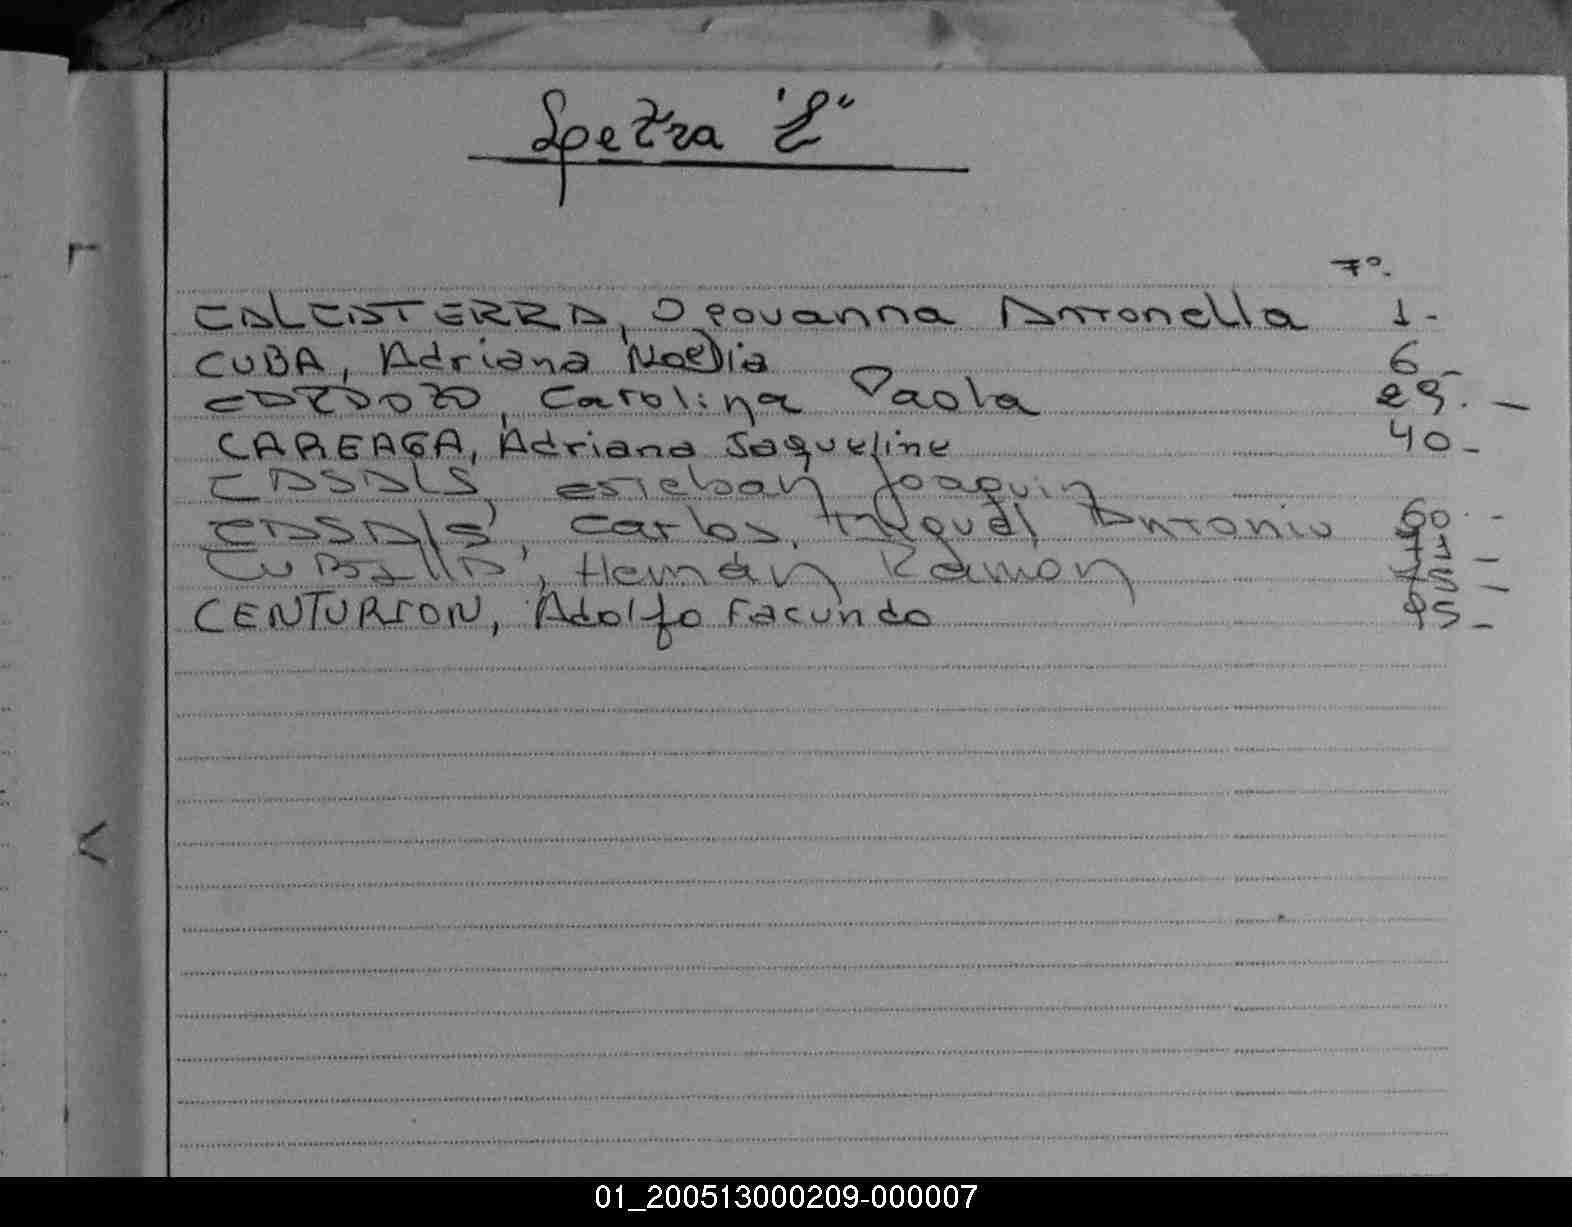 Letra "C"
Fº.
CALCATERRA, Geovanna Antonella 1-
CUBA, Adriana Noelia 6-
CARDOZO, Carolina Paola 29.-
CAREAGA, Adriana Jaqueline 40-
CASALS, Esteban Joaquin 60.-
CASALS, Carlos, Miguel Antonio 71-
CUBILLA, Hernán Ramon 75-
CENTURION, Adolfo Facundo 95-
01_200513000209-000007